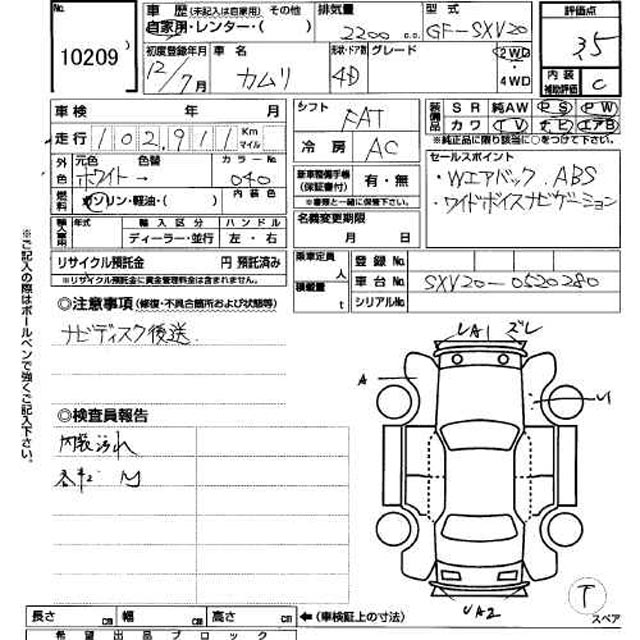 No. 10209
車歴 (未記入は自家用) その他
自家用・レンター・( )
排気量 2200 c.c.
型式 GF-SXV20
評価点 3.5
初度登録年月 12/7月
車名 カムリ
形状・ドア数 4D
グレード
2WD
・
4WD
内装補助評価 C
車検 年 月
走行 102,911 Km マイル
外色 元色 色替 カラーNo.
ホワイト → 040
燃料 ガソリン・軽油・( ) 内装色
輸入車用 年式 輸入区分 ハンドル
ディーラー・並行 左・右
リサイクル預託金 円 預託済み
※リサイクル預託金に資金管理料金は含まれません。
シフト FAT
冷房 AC
新車整備手帳(保証書付) 有・無
※書類と一緒に保管下さい。
名義変更期限
月 日
装備品 SR 純AW PS PW
カワ TV ナビ エアB
※純正品に限り該当に○をつけて下さい。
セールスポイント
・Wエアバック. ABS
・ワイドボイスナビゲーション
乗車定員 人
積載量 t
登録No.
車台No. SXV20-0520280
シリアルNo.
◎注意事項 (修復・不具合箇所および状態等)
ナビディスク後送.
◎検査員報告
内装汚れ
※ご記入の際はボールペンで強くご記入下さい。
UA1 ズレ
A
UA2
T
スペア
長さ cm 幅 cm 高さ cm ←(車検証上の寸法)
希望出品ブロック